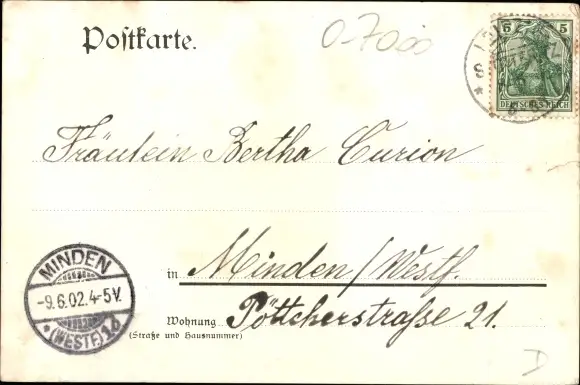 Postkarte.
0-7000
5 5
DEUTSCHES REICH
Fräulein Bertha Curion
in Minden/Westf.
MINDEN
-9.6.02.4-5V.
*(WESTF.)1b
Wohnung Pöttcherstraße 21.
(Straße und Hausnummer)
D